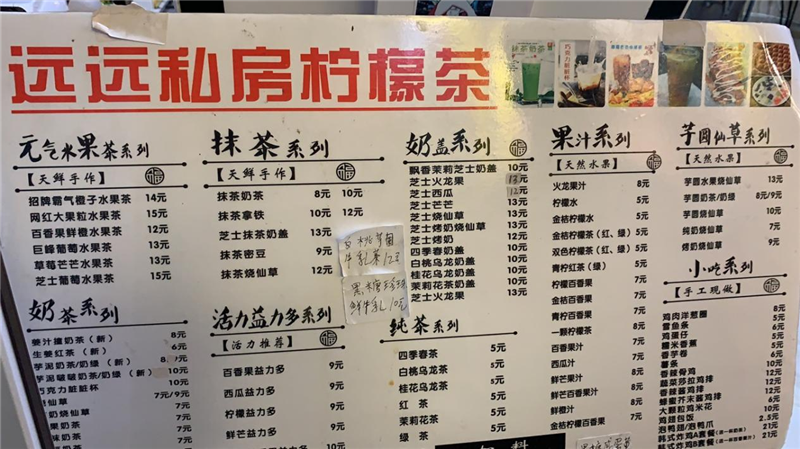 远远私房柠檬茶
元气水果茶系列
【天鲜手作】
招牌霸气橙子水果茶 14元
网红大果粒水果茶 15元
百香果鲜橙水果茶 12元
巨峰葡萄水果茶 13元
草莓芒芒水果茶 13元
芝士葡萄水果茶 15元
奶茶系列
姜汁撞奶茶(新) 8元
生姜红茶(新) 6元
芋泥奶茶/奶绿(新)
芋泥啵啵奶茶/奶绿(新)
巧克力脏脏杯 10元
仙草 7元/9元
奶烧仙草 7元
奶茶 7元
抹茶系列
【天鲜手作】
抹茶奶茶 8元 10元
抹茶拿铁 10元 12元
芝士抹茶奶盖 13元
抹茶密豆 9元
抹茶烧仙草 12元
白桃芋圆
牛乳茶12元
黑糖珍珠
鲜牛乳10元
活力益力多系列
【活力推荐】
百香果益力多 9元
西瓜益力多 9元
柠檬益力多 9元
鲜芒益力多 9元
奶盖系列
飘香茉莉芝士奶盖 10元
芝士火龙果 13元
芝士西瓜 12元
芝士芒芒 13元
芝士烧仙草 13元
芝士烤奶烧仙草 13元
芝士烤奶 12元
四季春奶盖 10元
白桃乌龙奶盖 10元
桂花乌龙奶盖 10元
芝士火龙果 13元
纯茶系列
四季春茶 5元
白桃乌龙茶 5元
桂花乌龙茶 5元
红茶 5元
茉莉花茶 5元
绿茶 5元
果汁系列
【天然水果】
火龙果汁 8元
柠檬水 5元
金桔柠檬水 5元
金桔柠檬茶(红、绿) 5元
双色柠檬茶(红、绿) 5元
青柠红茶(绿) 5元
柠檬百香果 7元
金桔百香果 7元
青柠百香果 7元
一颗柠檬茶 8元
百香果汁 7元
西瓜汁 7元
鲜芒果汁 8元
鲜芒百香果汁 8元
鲜橙汁 8元
金桔柠檬百香果 7元
芋圆仙草系列
【天然水果】
芋圆水果烧仙草 13元
芋圆奶茶/奶绿 8元/9元
芋圆烧仙草 10元
炖奶烧仙草 7元
烤奶烧仙草 9元
小吃系列
【手工现做】
鸡肉洋葱圈 8元
雪鱼条 6元
鸡蛋仔 5元
糯米香蕉 5元
香芋卷 6元
薯条 10元
香辣骨鸡 12元
蔬菜莎拉鸡排 12元
香辣孜然鸡排 12元
蜂蜜芥末酱鸡排 12元
大颗粒鸡米花 10元
鸡翅包饭 10元
泡鸭翅/泡鸭爪 2.5元
韩式炸鸡A套餐 21元
韩式炸鸡B套餐 21元